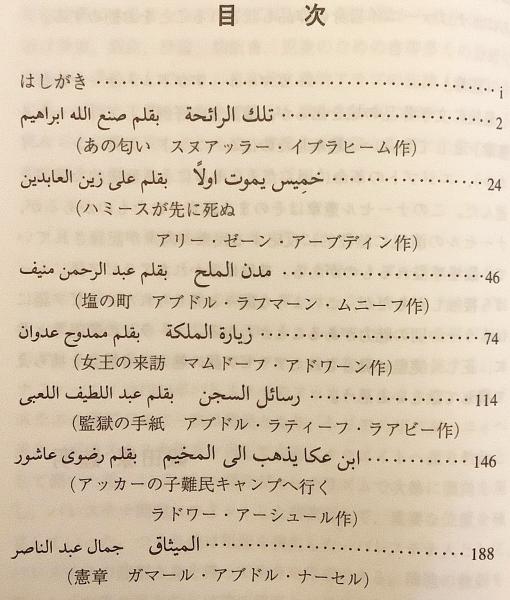 目次
はしがき……………………………………i
تلك الرائحة بقلم صنع الله ابراهيم……………………2
(あの匂い スヌアッラー・イブラヒーム作)
خميس يموت اولاً بقلم على زين العابدين……………………24
(ハミースが先に死ぬ
アリー・ゼーン・アーブディン作)
مدن الملح بقلم عبد الرحمن منيف……………………46
(塩の町 アブドル・ラフマーン・ムニーフ作)
زيارة الملكة بقلم ممدوح عدوان……………………74
(女王の来訪 マムドーフ・アドワーン作)
رسائل السجن بقلم عبد اللطيف اللعبى……………………114
(監獄の手紙 アブドル・ラティーフ・ラアビー作)
ابن عكا يذهب الى المخيم بقلم رضوى عاشور……………………146
(アッカーの子難民キャンプへ行く
ラドワー・アーシュール作)
الميثاق جمال عبد الناصر……………………188
(憲章 ガマール・アブドル・ナーセル)